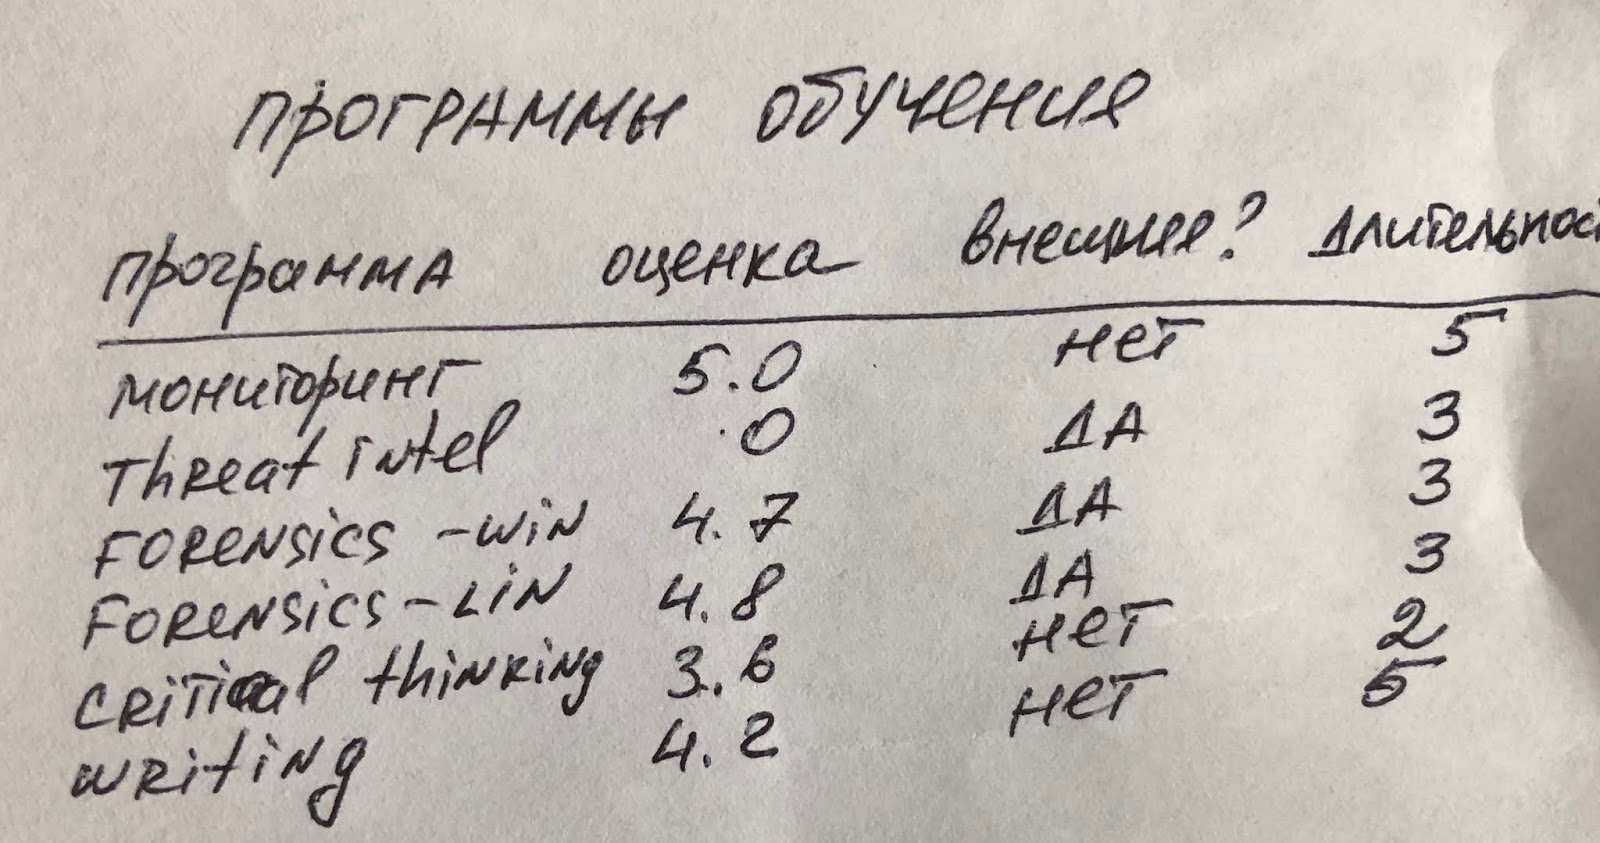 Программы обучения
программа оценка внешнее? длительност
мониторинг 5.0 нет 5
Threat intel .0 ДА 3
Forensics -win 4.7 ДА 3
Forensics-Lin 4.8 ДА 3
critical thinking 3.6 нет 2
writing 4.2 нет 5